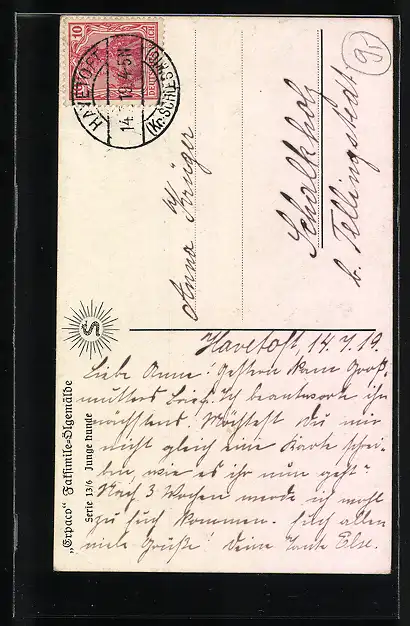 10
DEUTSCHES REICH
HAVETOFT
14. 19. 4-5N
(Kr. SCHLESWIG)
91
Anna Krüger
Schalkholz
b. Tellingstedt
S
„Erpaco“ Faksimile-Ölgemälde
Serie 13/6 Junge Hunde
Havetoft, 14.7.19.
Liebe Anna! Gestern kam Groß-
mutters Brief. Ich beantworte ihn
nächstens! Möchtest Du mir
nicht gleich eine Karte schrei-
ben, wie es ihr nun geht?
Nach 3 Wochen werde ich wohl
zu Euch kommen. Euch allen
viele Grüße! Deine Tante Else.